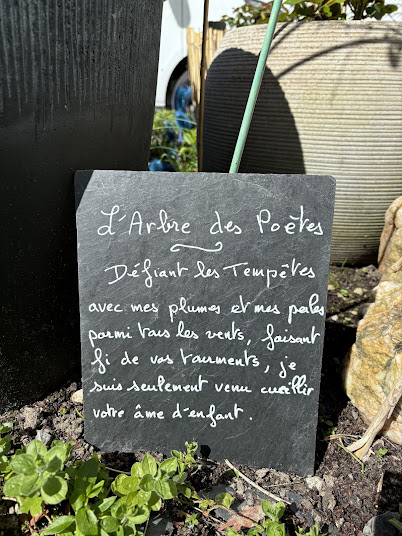 L'Arbre des Poètes
Défiant les Tempêtes
avec mes plumes et mes perles
parmi tous les vents, faisant
fi de vos tourments, je
suis seulement venu cueillir
votre âme d'enfant.